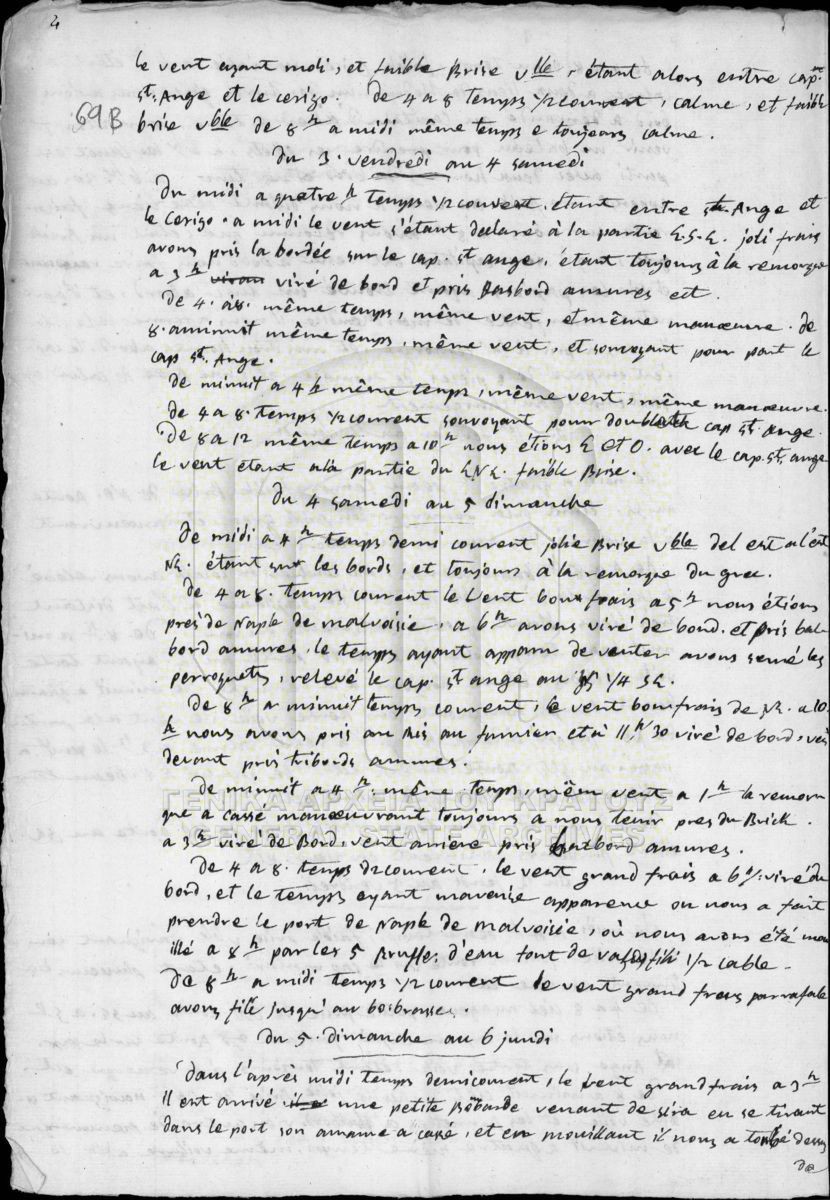 4
69B
le vent ayant moli, et faible Brise vble, étant alors entre cap.
St. Ange et le Cerigo. De 4 a 8 Temps 1/2 couvert, calme, et faible
brise vble de 8h a midi même temps e toujours calme.
Du 3. vendredi au 4 samedi
Du midi a quatre h Temps 1/2 couvert, étant entre St. Ange et
le Cerigo. a midi le vent s'étant declaré à la partie E.S.E. joli frais
avons pris la bordée sur le cap. St ange, étant toujours à la remorque
a 3h viré de bord et pris basbord amures est.
De 4. à 8. même temps, même vent, et même manœuvre. de
8. a minuit même temps, même vent, et louvoyant pour le
cap St. Ange.
De minuit a 4h même temps, même vent, même manœuvre.
De 4 a 8. Temps 1/2 couvert louvoyant pour doubler cap St. Ange.
De 8 a 12 même temps a 10h nous étions E et O. avec le cap. St. ange
le vent etant a la partie du E.N.E. faible Brise.
Du 4 samedi au 5 dimanche
De midi a 4h temps demi couvert jolie Brise vble del est a l'est
NE. étant sur les bords, et toujours à la remorque du grec.
De 4 a 8. Temps couvert le vent bon frais a 5h nous étions
pres de Naple de malvoisie, a 6h avons viré de bord. et pris bas
bord amures, le temps ayant apparu de venter avons serré les
perroquets, relevé le cap. St ange au 1/4 SE.
De 8h a minuit temps couvert, le vent bon frais de NE. a 10.
h nous avons pris un Ris au hunier et à 11h 30 viré de bord, vent
devant pris tribords amures.
De minuit a 4h. même temps, mêm vent a 1h la remor
que a cassé manœuvrant toujours a nous tenir pres du Brick.
a 3h viré de Bord, vent arriere pris batbord amures.
De 4 a 8. temps 1/2 couvert, le vent grand frais a 6h 1/2 viré du
bord, et le temps ayant mauvaise apparence on nous a fait
prendre le port de Naple de Malvoisie, où nous avons été mou
illé a 8h par les 5 Brasses d'eau font de vase filé 1/2 cable.
De 8h a midi temps 1/2 couvert le vent grand frais par rafale
avons filé jusqu'au
Du 5. dimanche au 6 lundi
Dans l'après midi temps demi couvert, le vent grand frais a 3h
il est arrivé une petite Bombarde venant de Sira en se tirant
dans le port son amarre a cassé, et en mouillant il nous a tombé dessus
ΓΕΝΙΚΑ ΑΡΧΕΙΑ ΤΟΥ ΚΡΑΤΟΥΣ
GENERAL STATE ARCHIVES